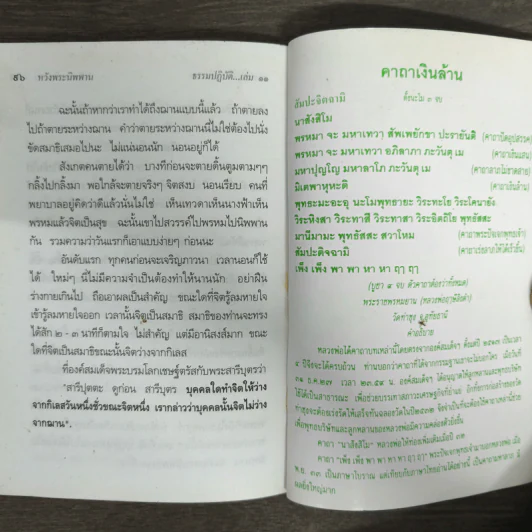 ๕๖ หวังพระนิพพาน ธรรมปฏิบัติ...เล่ม ๑๑
ฉะนั้นถ้าหากว่าเราทำได้ถึงฌานแบบนี้แล้ว ถ้าตายลง
ไปถ้าตายระหว่างฌาน คำว่าตายระหว่างฌานนี่ไม่ใช่ต้องไปนั่ง
ขัดสมาธิเสมอไปนะ ไม่แน่นอนนัก นอนอยู่ก็ได้
สังเกตคนตายได้ว่า บางทีก่อนจะตายดิ้นตูมตามๆๆ
กลิ้งไปกลิ้งมา พอใกล้จะตายจริงๆ จิตสงบ นอนเรียบ คนที่
พยาบาลอยู่คิดว่าดีแล้วนั่นไม่ใช่ เห็นเทวดาเห็นนางฟ้าเห็น
พรหมแล้วจิตเป็นสุข ฉะนั้นเขาไปสวรรค์ไปพรหมไปนิพพาน
กัน รวมความว่าวันแรกก็เอาแบบง่ายๆ ก่อนนะ
อันดับแรก ทุกคนก่อนจะเจริญภาวนา เวลานอนก็ใช้
ได้ ใหม่ๆ นี่ไม่มีความจำเป็นต้องทำให้นานนัก อย่าฝืน
ร่างกายเกินไป ถือเอาผลเป็นสำคัญ ขณะใดที่จิตรู้ลมหายใจ
เข้ารู้ลมหายใจออก เวลานั้นจิตเป็นสมาธิ สมาธิของท่านจะทรง
ได้สัก ๒ - ๓ นาทีก็ตามใจ ไม่สำคัญ แต่มีอานิสงส์มาก ขณะ
ใดที่จิตเป็นสมาธิขณะนั้นจิตว่างจากกิเลส
ที่องค์สมเด็จพระบรมโลกเชษฐ์ตรัสกับพระสารีบุตรว่า
"สารีปุตตะ ดูก่อน สารีบุตร บุคคลใดทำจิตให้ว่าง
จากกิเลสวันหนึ่งชั่วขณะจิตหนึ่ง เรากล่าวว่าบุคคลนั้นจิตไม่ว่าง
จากฌาน".
คาถาเงินล้าน
ตั้งนะโม ๓ จบ
สัมปะจิตฉามิ
นาสังสิโม
พรหมา จะ มหาเทวา สัพเพยักขา ปะรายันติ (คาถาปัดอุปสรรค)
พรหมา จะ มหาเทวา อภิลาภา ภะวันตุ เม (คาถาเงินแสน)
มหาปุญโญ มหาลาโภ ภะวันตุ เม (คาถาลาภไม่ขาดสาย)
มิเตพาหุหะติ (คาถาเงินล้าน)
พุทธะมะอะอุ นะโมพุทธายะ วิระทะโย วิระโคนายัง
วิระหิงสา วิระทาสี วิระทาสา วิระอิตถิโย พุทธัสสะ
มานีมามะ พุทธัสสะ สวาโหม (คาถาพระปัจเจกพุทธเจ้า)
สัมปะติจฉามิ (คาถาเร่งลาภให้ได้เร็วขึ้น)
เพ็ง เพ็ง พา พา หา หา ฤา ฤา
(บูชา ๙ จบ ตัวคาถาต้องว่าทั้งหมด)
พระราชพรหมยาน (หลวงพ่อฤาษีลิงดำ)
วัดท่าซุง จ.อุทัยธานี
คำอธิบาย
คาถา "นาสังสิโม" หลวงพ่อให้ท่อนเพิ่มเติมเมื่อปี ๓๓